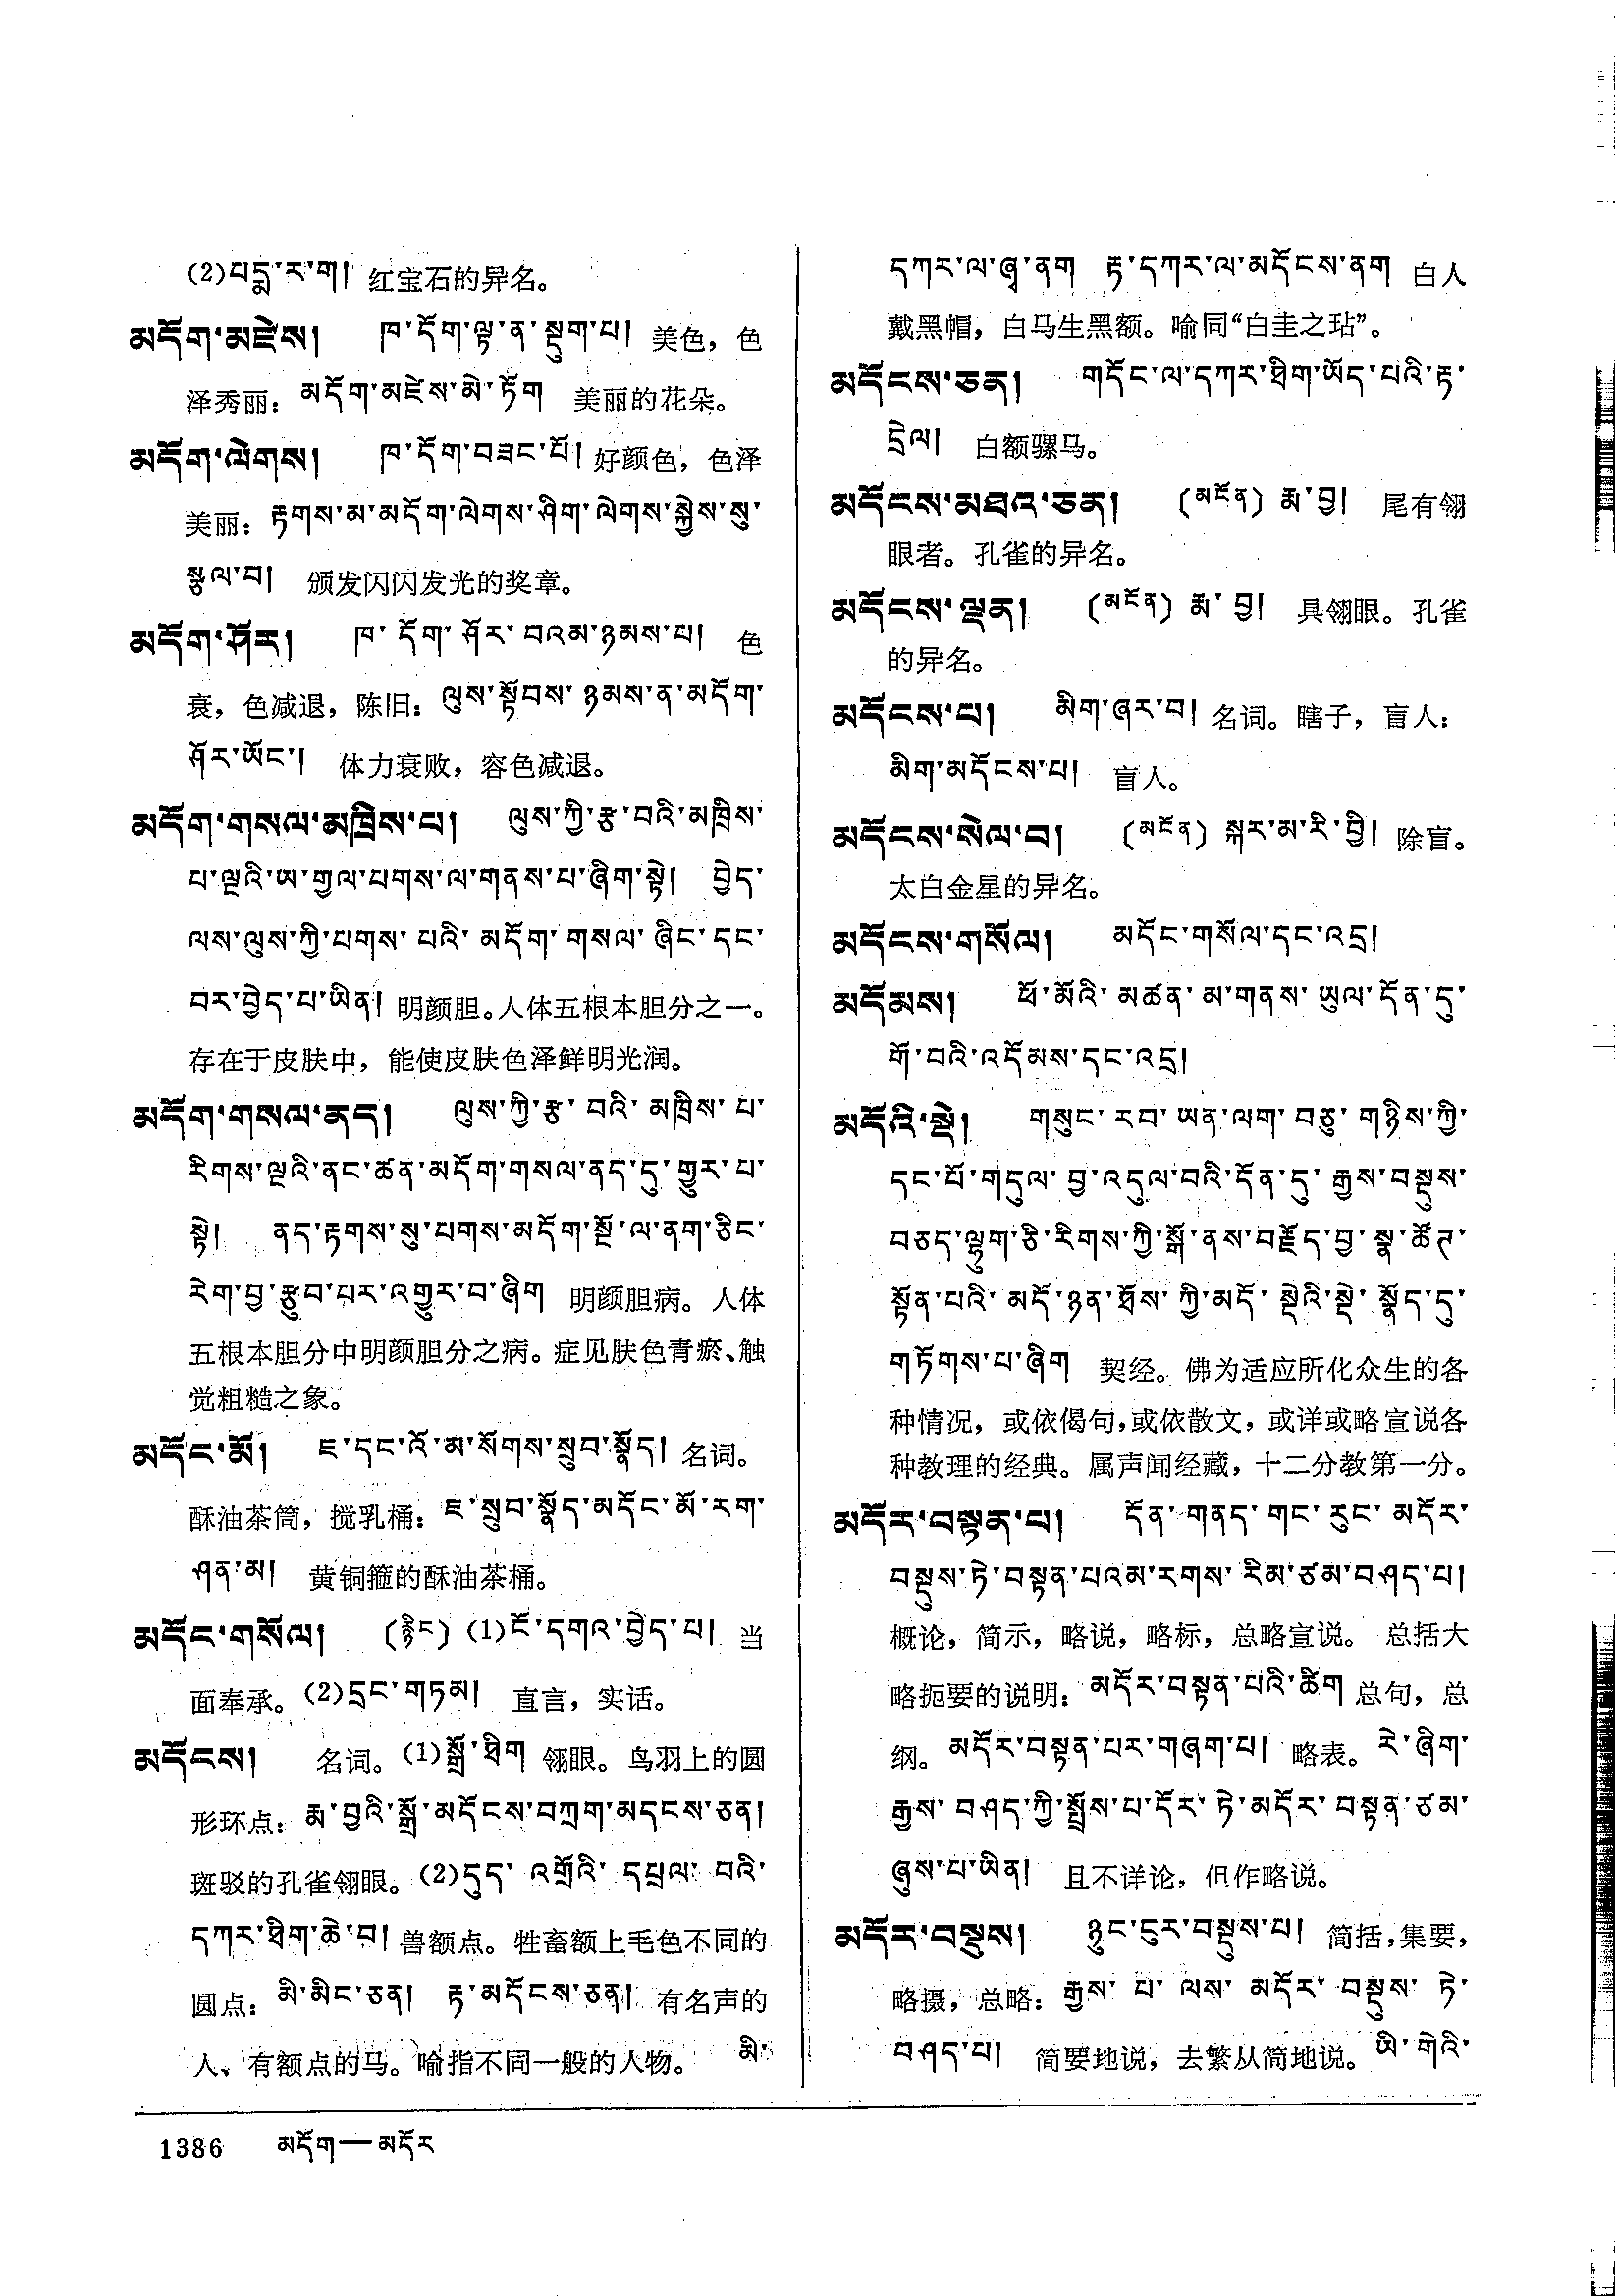 (2)པདྨ་ར་ག། 红宝石的异名。
མདོག་མཛེས། ཁ་དོག་ལྟ་ན་སྡུག་པ། 美色，色
泽秀丽：མདོག་མཛེས་མེ་ཏོག 美丽的花朵。
མདོག་ལེགས། ཁ་དོག་བཟང་པོ། 好颜色，色泽
美丽：རྟགས་མ་མདོག་ལེགས་ཤིག་ལེགས་སྐྱེས་སུ་
སྩལ་བ། 颁发闪闪发光的奖章。
མདོག་ཤོར། ཁ་དོག་ཤོར་བའམ་ཉམས་པ། 色
衰，色减退，陈旧：ལུས་སྟོབས་ཉམས་ན་མདོག་
ཤོར་ཡོང་། 体力衰败，容色减退。
མདོག་གསལ་མཁྲིས་པ། ལུས་ཀྱི་རྩ་བའི་མཁྲིས་
པ་ལྔའི་ཨ་གྱལ་པགས་ལ་གནས་པ་ཞིག་སྟེ། བྱེད་
ལས་ལུས་ཀྱི་པགས་པའི་མདོག་གསལ་ཞིང་དང་
བར་བྱེད་པ་ཡིན། 明颜胆。人体五根本胆分之一。
存在于皮肤中，能使皮肤色泽鲜明光润。
མདོག་གསལ་ནད། ལུས་ཀྱི་རྩ་བའི་མཁྲིས་པ་
རིགས་ལྔའི་ནང་ཚན་མདོག་གསལ་ནད་དུ་གྱུར་པ་
སྟེ། ནད་རྟགས་སུ་པགས་མདོག་སྔོ་ལ་ནག་ཅིང་
རེག་བྱ་རྩུབ་པར་འགྱུར་བ་ཞིག 明颜胆病。人体
五根本胆分中明颜胆分之病。症见肤色青瘀、触
觉粗糙之象。
མདོང་མོ། ཇ་དང་འོ་མ་སོགས་སྲུབ་སྣོད། 名词。
酥油茶筒，搅乳桶：ཇ་སྲུབ་སྣོད་མདོང་མོ་རག་
ཤན་མ། 黄铜箍的酥油茶桶。
མདོང་གསོལ། (རྙིང) (1)ངོ་དགའ་བྱེད་པ། 当
面奉承。(2)དྲང་གཏམ། 直言，实话。
མདོངས། 名词。(1)སྒྲོ་ཐིག 翎眼。鸟羽上的圆
形环点：རྨ་བྱའི་སྒྲོ་མདོངས་བཀྲག་མདངས་ཅན།
斑驳的孔雀翎眼。(2)དུད་འགྲོའི་དཔྲལ་བའི་
དཀར་ཐིག་ཆེ་བ། 兽额点。牲畜额上毛色不同的
圆点：མི་མིང་ཅན། རྟ་མདོངས་ཅན། 有名声的
人、有额点的马。喻指不同一般的人物。 མི་
དཀར་ལ་ཞྭ་ནག རྟ་དཀར་ལ་མདོངས་ནག 白人
戴黑帽，白马生黑额。喻同“白圭之玷”。
མདོངས་ཅན། གདོང་ལ་དཀར་ཐིག་ཡོད་པའི་རྟ་
དྲེལ། 白额骡马。
མདོངས་མཐའ་ཅན། (མངོན) རྨ་བྱ། 尾有翎
眼者。孔雀的异名。
མདོངས་ལྡན། (མངོན) རྨ་བྱ། 具翎眼。孔雀
的异名。
མདོངས་པ། མིག་ཞར་བ། 名词。瞎子，盲人：
མིག་མདོངས་པ། 盲人。
མདོངས་སེལ་བ། (མངོན) སྐར་མ་རི་བྱི། 除盲。
太白金星的异名。
མདོངས་གསོལ། མདོང་གསོལ་དང་འདྲ།
མདོམས། ཕོ་མོའི་མཚན་མ་གནས་ཡུལ་དོན་དུ་
གོ་བའི་འདོམས་དང་འདྲ།
མདོའི་སྡེ། གསུང་རབ་ཡན་ལག་བཅུ་གཉིས་ཀྱི་
དང་པོ་གདུལ་བྱ་འདུལ་བའི་དོན་དུ་རྒྱས་བསྡུས་
བཅད་ལྷུག་ཅི་རིགས་ཀྱི་སྒོ་ནས་བརྗོད་བྱ་སྣ་ཚོཊ་
སྟོན་པའི་མདོ་ཉན་ཐོས་ཀྱི་མདོ་སྡེའི་སྡེ་སྣོད་དུ་
གཏོགས་པ་ཞིག 契经。佛为适应所化众生的各
种情况，或依偈句，或依散文，或详或略宣说各
种教理的经典。属声闻经藏，十二分教第一分。
མདོར་བསྟན་པ། དོན་གནད་གང་རུང་མདོར་
བསྡུས་ཏེ་བསྟན་པའམ་རགས་རིམ་ཙམ་བཤད་པ།
概论，简示，略说，略标，总略宣说。 总括大
略扼要的说明：མདོར་བསྟན་པའི་ཚིག 总句，总
纲。མདོར་བསྟན་པར་གཞག་པ། 略表。རེ་ཞིག་
རྒྱས་བཤད་ཀྱི་སྤྲོས་པ་དོར་ཏེ་མདོར་བསྟན་ཙམ་
ཞུས་པ་ཡིན། 且不详论，但作略说。
མདོར་བསྡུས། ཉུང་ངུར་བསྡུས་པ། 简括，集要，
略摄，总略：རྒྱས་པ་ལས་མདོར་བསྡུས་ཏེ་
བཤད་པ། 简要地说，去繁从简地说。ཡི་གེའི་
1386 མདོག—མདོར